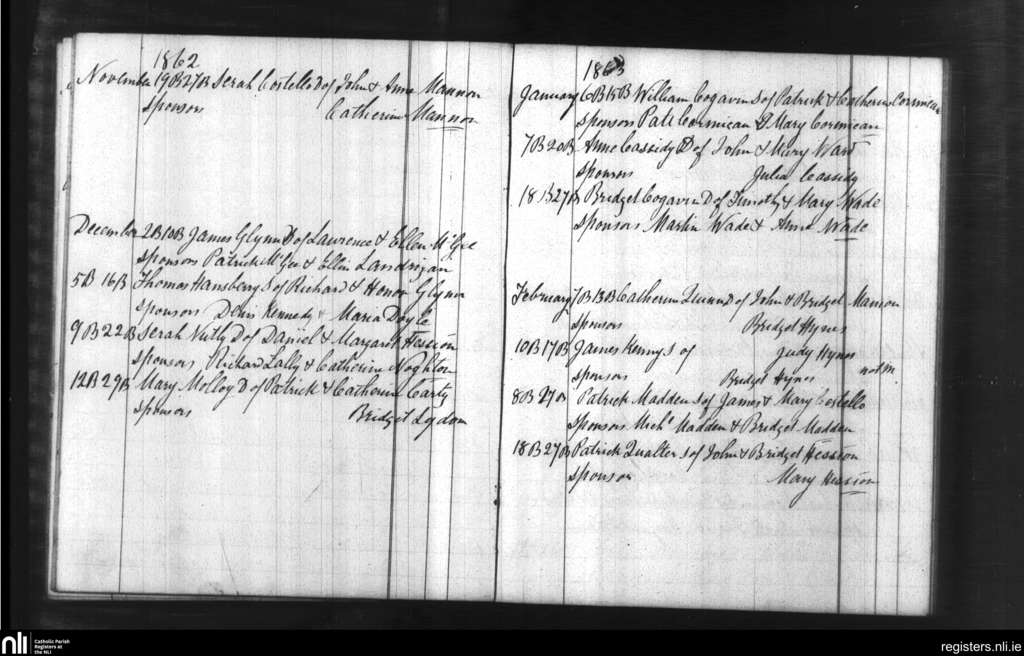 1862
November 19B27B Serah Costello D of John & Anne Mannon
sponsors Catherine Mannon
December 2B10B James Glynn D of Lawrence & Ellen McGee
sponsors Patrick McGee & Ellen Landrigan
5B 16B Thomas Hansberry S of Richard & Honor Glynn
sponsors Denis Kennedy & Maria Doyle
9B22B Serah Nutly D of Daniel & Margaret Hession
sponsors Richard Lally & Catherine Noghton
12B 29B Mary Molloy D of Patrick & Catherine Carty
sponsors Bridget Lydon
1863
January 6B15B William Cogavin S of Patrick & Catherin Cormican
sponsors Patt Cormican & Mary Cormican
7B20B Anne Cassidy D of John & Mary Ward
sponsors Julia Cassidy
18B27B Bridget Cogavin D of Timothy & Mary Wade
sponsors Martin Wade & Anne Wade
February 7B13B Catherin Quinn D of John & Bridget Mannion
sponsors Bridget Hynes
10B17B James Kenny S of Judy Hynes
not m.
sponsors Bridget Hynes
8B27B Patrick Madden S of James & Mary Costello
sponsors Michl Madden & Bridget Madden
18B27B Patrick Qualter S of John & Bridget Hession
sponsors Mary Hession
nli Catholic Parish
Registers at
the NLI
registers.nli.ie